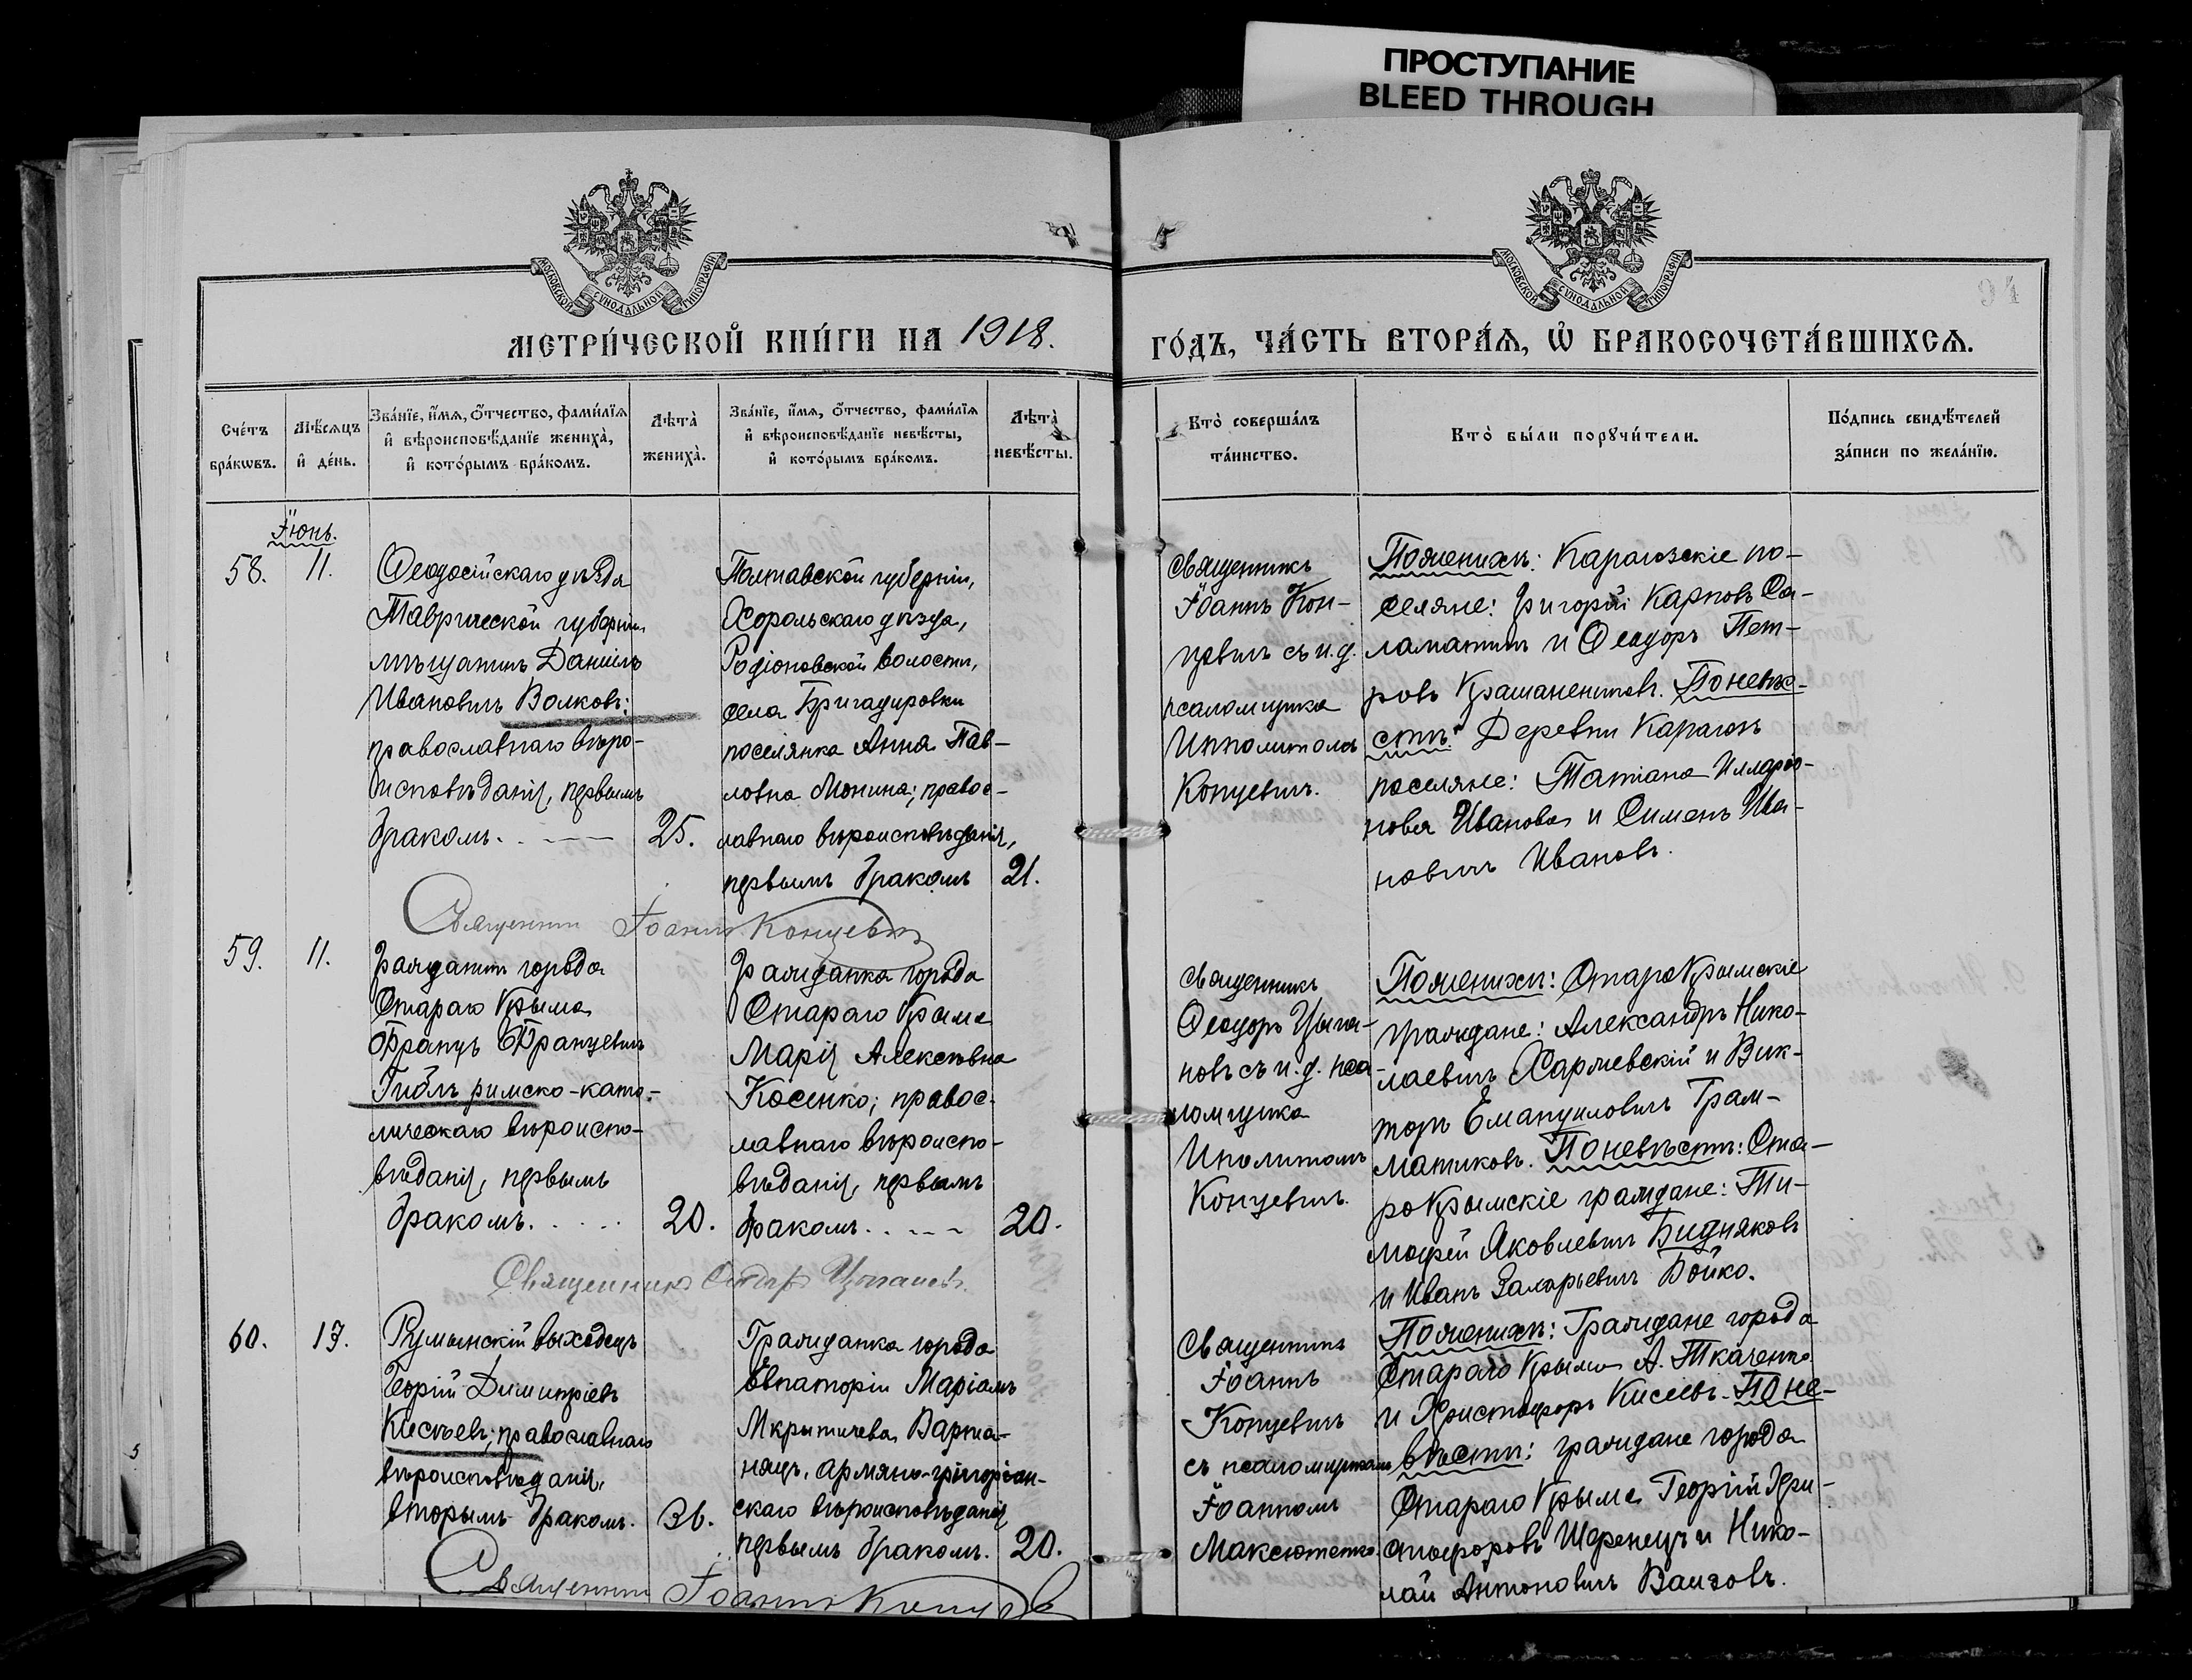 ПРОСТУПАНИЕ
BLEED THROUGH
МОСКОВСКОЙ СѴНОДАЛЬНОЙ ТИПОГРАФІИ
МОСКОВСКОЙ СѴНОДАЛЬНОЙ ТИПОГРАФІИ
94
МЕТРИ́ЧЕСКОЙ КНИ́ГИ НА 1918.
ГО́ДЪ, ЧА́СТЬ ВТОРА́Я, Ѡ҆ БРАКОСОЧЕТА́ВШИХСЯ.
Сче́тъ
бра́кѡвъ.
Мѣ́сяцъ
и҆ де́нь.
Зва́нїе, и҆́мя, ѻ҆́тчество, фами́лїя
и҆ вѣроисповѣ́данїе жениха̀,
и҆ кото́рымъ бра́комъ.
Лѣта̀
жениха̀.
Зва́нїе, и҆́мя, ѻ҆́тчество, фами́лїя
и҆ вѣроисповѣ́данїе невѣ́сты,
и҆ кото́рымъ бра́комъ.
Лѣта̀
невѣ́сты.
Кто̀ соверша́лъ
та́инство.
Кто̀ бы́ли порꙋчи́тели.
По́дпись свидѣ́телей
за́писи по жела́нїю.
Іюнь.
58.
11.
Ѳеодосійскаго уѣзда
Таврической губерніи
мѣщанинъ Даніилъ
Ивановичъ Волковъ;
православнаго вѣро-
исповѣданія, первымъ
бракомъ.
25.
Полтавской губерніи,
Хорольскаго уѣзда,
Родіоновской волости,
села Бригадировки
поселянка Анна Пав-
ловна Монина; правос-
лавнаго вѣроисповѣданія,
первымъ бракомъ
21.
Священникъ
Іоаннъ Кон-
цевичъ съ и.д.
псаломщика
Ипполитомъ
Концевичъ.
По женихѣ: Карагозскіе по-
селяне: Григорій Карповъ Са-
ламатинъ и Ѳеодоръ Пет-
ровъ Крашаненниковъ. По невѣ-
стѣ: Деревни Карагозъ
поселяне: Татіана Илларіо-
нова Иванова и Сименъ Ива-
новичъ Ивановъ.
Священникъ Іоаннъ Концевичъ
59.
11.
Гражданинъ города
Стараго Крыма
Францъ Францевичъ
Гиблъ римско-като-
лическаго вѣроиспо-
вѣданія, первымъ
бракомъ.
20.
Гражданка города
Стараго Крыма
Марія Алексѣевна
Косенко; правос-
лавнаго вѣроиспо-
вѣданія, первымъ
бракомъ.
20.
Священникъ
Ѳеодоръ Цыга-
новъ съ и.д. пса-
ломщика
Иполитомъ
Концевичъ.
По женихѣ: Старо Крымскіе
граждане: Александръ Нико-
лаевичъ Харжевскій и Вик-
торъ Емануиловичъ Грам-
матиковъ. По невѣстѣ: Ста-
ро Крымскіе граждане: Ти-
мофей Яковлевичъ Бидняковъ
и Иванъ Захарьевичъ Бойко.
Священникъ Ѳеодоръ Цыгановъ.
60.
17.
Румынскій выходецъ
Георгій Димитріевъ
Кисѣевъ; православнаго
вѣроисповѣданія,
вторымъ бракомъ.
36.
Гражданка города
Евпаторіи Маріамъ
Мкрытичева Варта-
нянцъ, армяно-григоріан-
скаго вѣроисповѣданія,
первымъ бракомъ.
20.
Священникъ
Іоаннъ
Концевичъ
съ псаломщикомъ
Іоанномъ
Максютенко.
По женихѣ: Граждане города
Стараго Крыма А. Ткаченко
и Христофоръ Кисеевъ. По не-
вѣстѣ: граждане города
Стараго Крыма Георгій Хри-
стофоровъ Шеренецъ и Нико-
лай Антоновичъ Ваизовъ.
Священникъ Іоаннъ Концевичъ
5